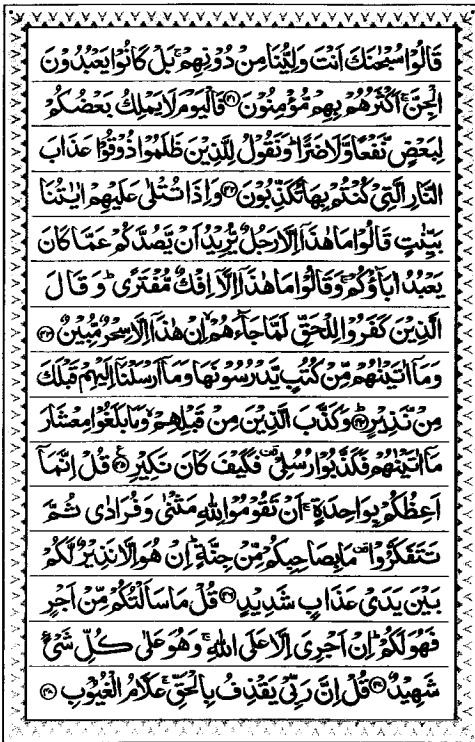 قَالُوۡا سُبۡحٰنَكَ اَنۡتَ وَلِيُّنَا مِنۡ دُوۡنِهِمۡۚ بَلۡ كَانُوۡا يَعۡبُدُوۡنَ
الۡجِنَّۚ اَكۡثَرُهُمۡ بِهِمۡ مُّؤۡمِنُوۡنَ ﴿۴۱﴾ فَالۡيَوۡمَ لَا يَمۡلِكُ بَعۡضُكُمۡ
لِبَعۡضٍ نَّفۡعًا وَّلَا ضَرًّاؕ وَنَقُوۡلُ لِلَّذِيۡنَ ظَلَمُوۡا ذُوۡقُوۡا عَذَابَ
النَّارِ الَّتِىۡ كُنۡتُمۡ بِهَا تُكَذِّبُوۡنَ ﴿۴۲﴾ وَاِذَا تُتۡلٰى عَلَيۡهِمۡ اٰيٰتُنَا
بَيِّنٰتٍ قَالُوۡا مَا هٰذَاۤ اِلَّا رَجُلٌ يُّرِيۡدُ اَنۡ يَّصُدَّكُمۡ عَمَّا كَانَ
يَعۡبُدُ اٰبَآؤُكُمۡۚ وَقَالُوۡا مَا هٰذَاۤ اِلَّاۤ اِفۡكٌ مُّفۡتَرًىؕ وَقَالَ
الَّذِيۡنَ كَفَرُوۡا لِلۡحَقِّ لَمَّا جَآءَهُمۡۙ اِنۡ هٰذَاۤ اِلَّا سِحۡرٌ مُّبِيۡنٌ ﴿۴۳﴾
وَمَاۤ اٰتَيۡنٰهُمۡ مِّنۡ كُتُبٍ يَّدۡرُسُوۡنَهَا وَمَاۤ اَرۡسَلۡنَاۤ اِلَيۡهِمۡ قَبۡلَكَ
مِنۡ نَّذِيۡرٍؕ ﴿۴۴﴾ وَكَذَّبَ الَّذِيۡنَ مِنۡ قَبۡلِهِمۡۙ وَمَا بَلَغُوۡا مِعۡشَارَ
مَاۤ اٰتَيۡنٰهُمۡ فَكَذَّبُوۡا رُسُلِىۡ فَكَيۡفَ كَانَ نَكِيۡرِ ﴿۴۵﴾ قُلۡ اِنَّمَاۤ
اَعِظُكُمۡ بِوَاحِدَةٍۚ اَنۡ تَقُوۡمُوۡا لِلّٰهِ مَثۡنٰى وَفُرَادٰى ثُمَّ
تَتَفَكَّرُوۡا مَا بِصَاحِبِكُمۡ مِّنۡ جِنَّةٍؕ اِنۡ هُوَ اِلَّا نَذِيۡرٌ لَّكُمۡ
بَيۡنَ يَدَىۡ عَذَابٍ شَدِيۡدٍ ﴿۴۶﴾ قُلۡ مَا سَاَلۡتُكُمۡ مِّنۡ اَجۡرٍ
فَهُوَ لَكُمۡؕ اِنۡ اَجۡرِىَ اِلَّا عَلَى اللّٰهِۚ وَهُوَ عَلٰى كُلِّ شَىۡءٍ
شَهِيۡدٌ ﴿۴۷﴾ قُلۡ اِنَّ رَبِّىۡ يَقۡذِفُ بِالۡحَقِّۚ عَلَّامُ الۡغُيُوۡبِ ﴿۴۸﴾